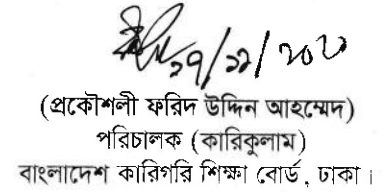 (প্রকৌশলী ফরিদ উদ্দিন আহম্মেদ)
পরিচালক (কারিকুলাম)
বাংলাদেশ কারিগরি শিক্ষা বোর্ড, ঢাকা।